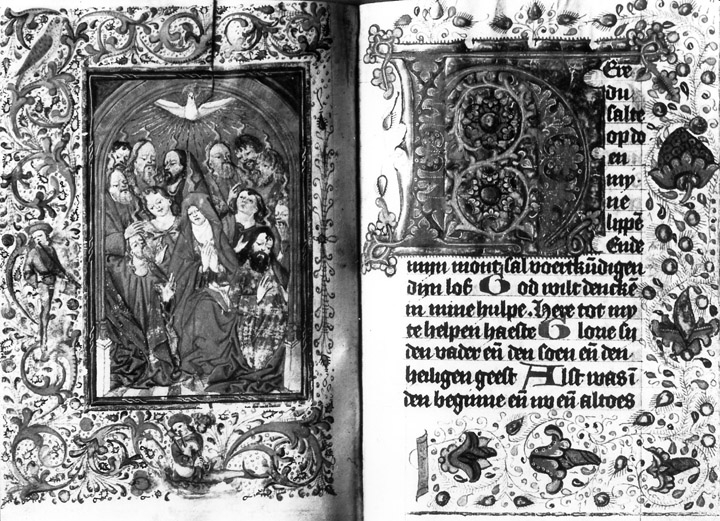 HEre
du
salte
op do
en
my
ne
lyppē
Ende
mijn mont sal voertkundigen
dijn lof God wilt denckē
in mine hulpe. Here tot my
te helpen haeste Glorie sy
den vader eñ den soen eñ den
heiligen geest Alst was ī
den beginne eñ nv eñ altoes